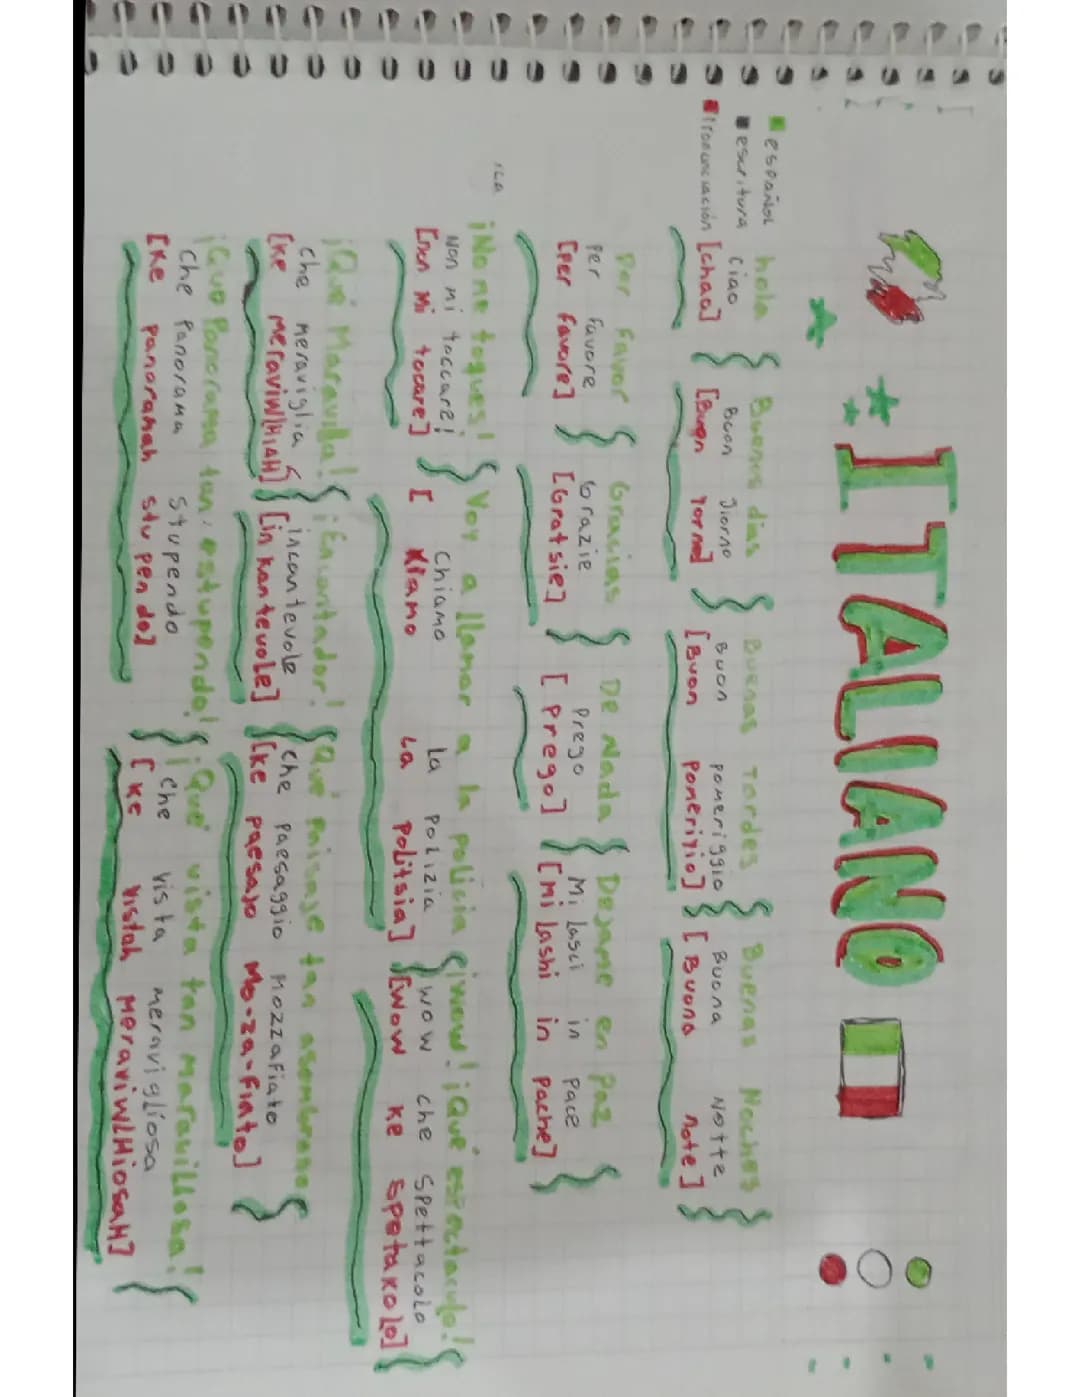 ITALIANO
español hola Buenos dias Buenas Tardes Buenas Noches
escritura Ciao Buon Jiorno Buon pomeriggio Buona Notte
Pronunciación [chao] [Buon Yorno] [Buon Pomeriyio] [Buona note]
Por favor Gracias De Nada Dejame en paz
Per favore Grazie Prego Mi Lasci in Pace
[per favore] [Gratsie] [Prego] [mi lashi in pache]
¡No me toques! Voy a llamar a la policia ¡wow! ¡Qué espectaculo!
Non mi toccare! Chiamo la Polizia wow che Spettacolo
[non Mi tocare] [Kiamo La politsia] [wow ke Spetakolo]
¡Qué Maravilla! ¡Encantador! ¡Qué Paisaje tan asombroso
che meraviglia incantevole che paesaggio mozzafiato
[ke meraviwlHiAH] [in kantevole] [ke paesajo Mo-za-fiato]
¡Que Panorama tan estupendo! ¡Qué vista tan maravillosa!
che Panorama Stupendo che vista meravigliosa
[ke panoramah stu pen do] [ke vistah MeraviwlHiosaH]